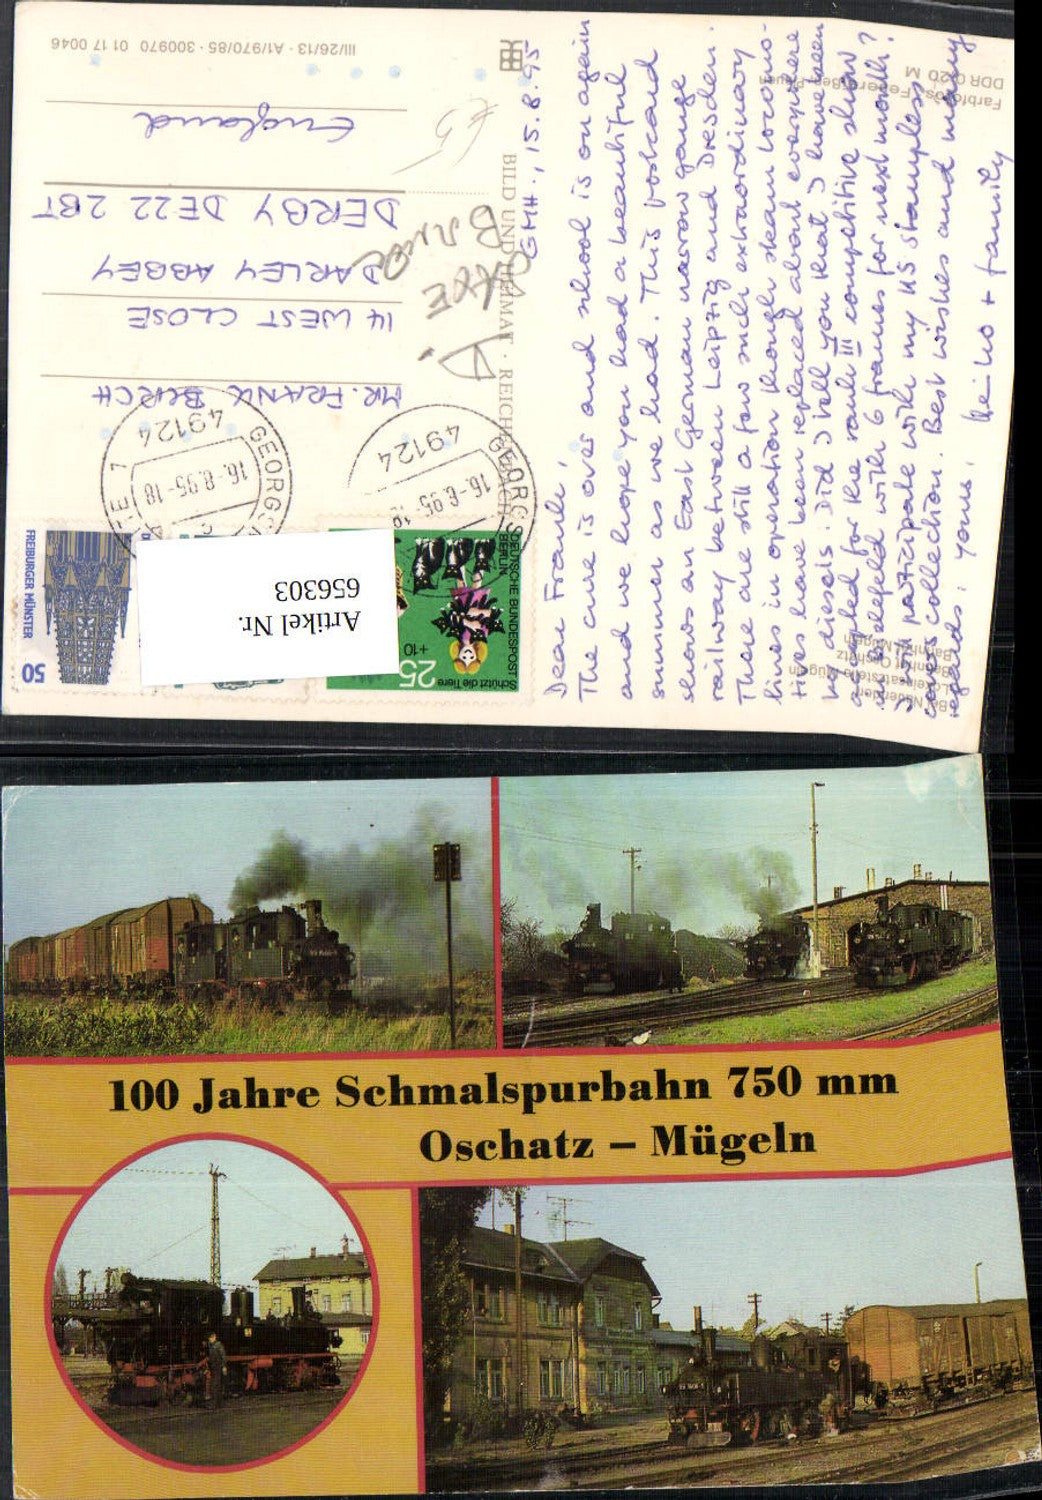 III/26/13 · A1/970/85 · 300970 01 17 0046
BILD UND HEIMAT · REICHENBACH
MR. FRANK BIRCH
14 WEST CLOSE
DARLEY ABBEY
DERBY DE22 2BT
England
£5
GEORGS
49124
16.-8.95-18
GEORGS
49124
16.-8.95-18
FREIBURGER MÜNSTER
50
DEUTSCHE BUNDESPOST
BERLIN
25
+10
Schützt die Tiere
Artikel Nr.
656303
DDR 0,20 M
Bahnhof Oschatz
Bahnhof Mügeln
GMH., 15.8.95
Dear Frank,
The cure is over and school is on again
and we hope you had a beautiful
summer as we had. This postcard
shows an East German narrow gauge
railway between Leipzig and Dresden.
There are still a few such extraordinary
lines in operation though steam locomo-
tives have been replaced about everywhere
by diesels. Did I tell you that I have been
accepted for the rank III competitive show
in Bielefeld with 6 frames for next month?
I'll participate with my US stampless
covers collection. Best wishes and many
regards, yours,
Heiko + family
100 Jahre Schmalspurbahn 750 mm
Oschatz – Mügeln